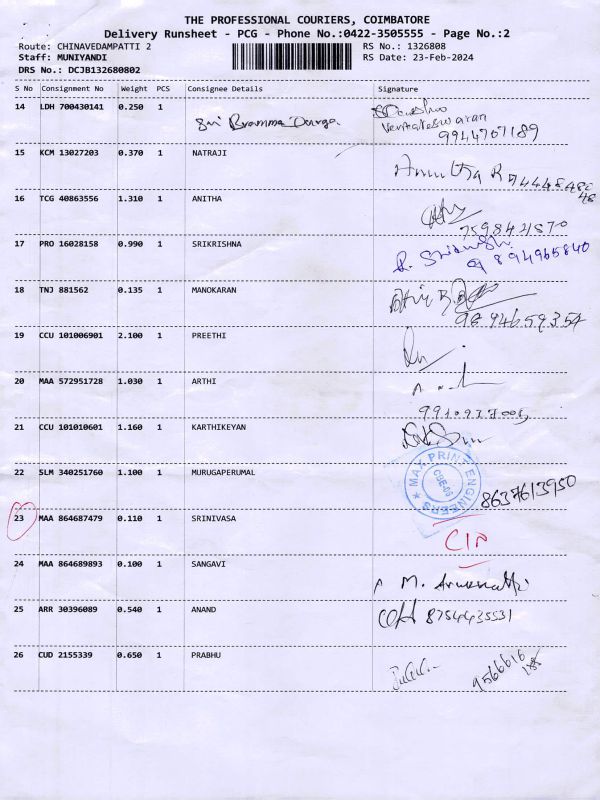 THE PROFESSIONAL COURIERS, COIMBATORE
Delivery Runsheet - PCG - Phone No.:0422-3505555 - Page No.:2
Route: CHINAVEDAMPATTI 2 RS No.: 1326808
Staff: MUNIYANDI RS Date: 23-Feb-2024
DRS No.: DCJB132680802
S No Consignment No Weight PCS Consignee Details Signature
14 LDH 700430141 0.250 1 Sri Bramma Durga
Venkateswaran
9944707189
15 KCM 13027203 0.370 1 NATRAJI
16 TCG 40863556 1.310 1 ANITHA
17 PRO 16028158 0.990 1 SRIKRISHNA
8 94965840
18 TNJ 881562 0.135 1 MANOKARAN
9894659354
19 CCU 101006901 2.100 1 PREETHI
20 MAA 572951728 1.030 1 ARTHI
21 CCU 101010601 1.160 1 KARTHIKEYAN
22 SLM 340251760 1.100 1 MURUGAPERUMAL MAX PRINT ENGINEERS CBE-06 8637613950
23 MAA 864687479 0.110 1 SRINIVASA
24 MAA 864689893 0.100 1 SANGAVI M.
25 ARR 30396089 0.540 1 ANAND 8754435531
26 CUD 2155339 0.650 1 PRABHU